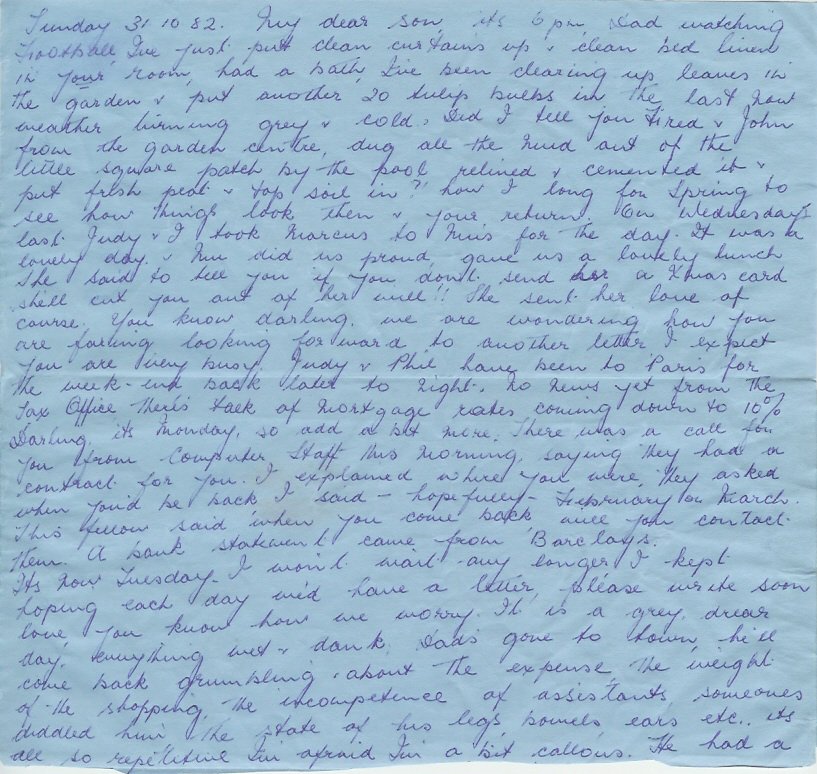 Sunday 31 10 82. My dear son, its 6 pm Dad watching
Football I've just put clean curtains up & clean bed linen
in your room, had a bath, I've been clearing up leaves in
the garden & put another 20 tulip bulbs in the last now
weather turning grey & cold, Did I tell you Fred & John
from the garden centre, dug all the mud out of the
little square patch by the pool relined & cemented it &
put fresh peat & top soil in?! how I long for Spring to
see how things look then & your return. On Wednesdays
last Judy & I took Marcus to Nins for the day. It was a
lovely day. & Nin did us proud, gave us a lovely lunch
She said to tell you if you don't send her a Xmas card
shell cut you out of her will!! She sent her love of
course. You know darling, we are wondering how you
are faring looking forward to another letter I expect
you are very busy. Judy & Phil have been to Paris for
the week-end back later to night. No news yet from the
Tax Office Theres talk of Mortgage rates coming down to 10%
Darling, its Monday, so add a bit more. There was a call for
you from Computer Staff this morning, saying they had a
contract for you. I explained where you were, they asked
when you'd be back I said - hopefully - February or March.
This fellow said when you come back will you contact
them. A bank statement came from Barclays.
Its now Tuesday - I won't wait any longer I kept
hoping each day we'd have a letter, please write soon
love you know how we worry. It is a grey, drear
day, everything wet & dank. Dads gone to town, he'll
come back grumbling about the expense, the weight
of the shopping, the incompetence of assistants, someones
diddled him, the state of his legs, bowels, ears, etc., its
all so repetitive I'm afraid I'm a bit callous. He had a